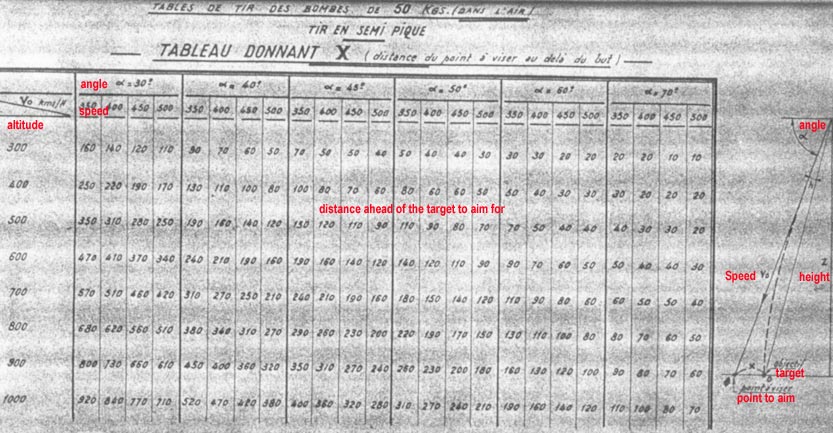 TABLES DE TIR DES BOMBES DE 50 KGS. (DANS L'AIR)
TIR EN SEMI PIQUE
TABLEAU DONNANT X (distance du point à viser au delà du but)
angle α = 30° α = 40° α = 45° α = 50° α = 60° α = 70°
Vo kms/H 350 400 450 500 350 400 450 500 350 400 450 500 350 400 450 500 350 400 450 500 350 400 450 500
speed
altitude
angle
α
300 160 140 120 110 90 70 60 50 70 50 50 40 50 40 40 30 30 30 20 20 20 20 10 10
400 250 220 190 170 130 110 100 80 100 80 70 60 80 60 60 50 50 40 30 30 30 20 20 20
distance ahead of the target to aim for
500 350 310 280 250 190 160 140 120 150 120 110 90 110 90 80 70 70 50 40 40 40 30 30 20
600 470 410 370 340 240 210 190 160 190 160 140 120 140 120 110 90 90 70 60 50 50 40 40 30
Speed Vo
Z
height
700 570 510 460 420 310 270 250 210 240 210 190 160 180 150 140 120 110 90 80 60 60 50 50 40
800 680 620 560 510 380 340 310 270 290 260 230 200 220 190 170 150 130 110 100 80 80 70 60 50
900 800 730 660 610 450 400 360 320 350 310 270 240 260 230 200 180 160 130 120 100 90 80 70 60
objectif
X
target
point à viser
point to aim
1000 920 840 770 710 520 470 420 380 400 360 320 280 310 270 240 210 190 160 140 120 110 100 80 70